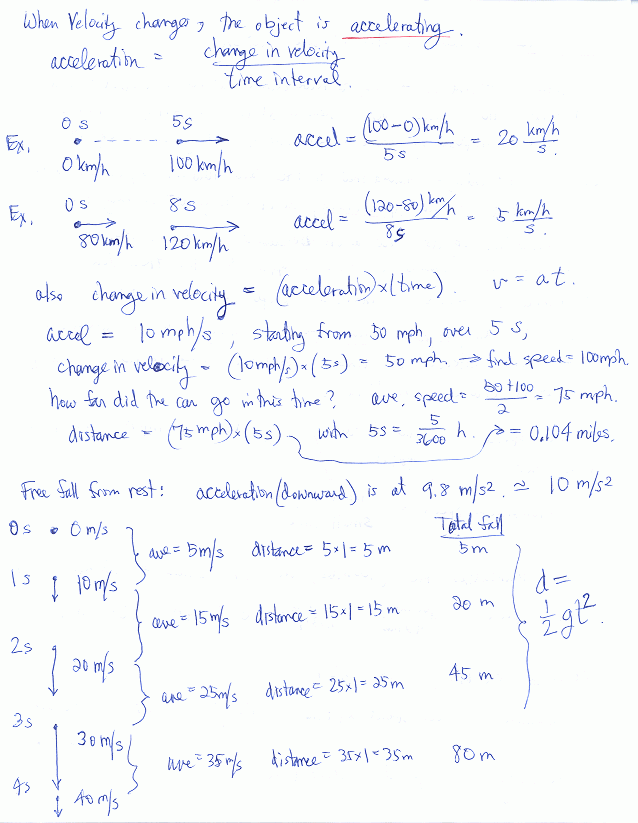 When Velocity changes, the object is accelerating.
acceleration = change in velocity / time interval.
Ex. 0 s 5 s accel = (100-0) km/h / 5 s = 20 km/h / s.
0 km/h 100 km/h
Ex. 0 s 8 s accel = (120-80) km/h / 8 s = 5 km/h / s.
80 km/h 120 km/h
also change in velocity = (acceleration) x (time). v = at.
accel = 10 mph/s, starting from 50 mph, over 5 s,
change in velocity = (10 mph/s) x (5 s) = 50 mph. → find speed = 100 mph.
how far did the car go in this time? ave. speed = 50+100 / 2 = 75 mph.
distance = (75 mph) x (5 s) with 5 s = 5/3600 h. = 0.104 miles.
Free fall from rest: acceleration (downward) is at 9.8 m/s2 ≈ 10 m/s2
Total fall
0 s 0 m/s ave = 5 m/s distance = 5x1 = 5 m 5 m
1 s 10 m/s ave = 15 m/s distance = 15x1 = 15 m 20 m d = 1/2 gt²
2 s 20 m/s ave = 25 m/s distance = 25x1 = 25 m 45 m
3 s 30 m/s ave = 35 m/s distance = 35x1 = 35 m 80 m
4 s 40 m/s